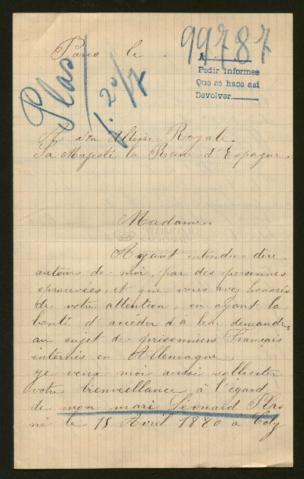 Paris le
99787
Plas
Pedir Informes
Que se hace así
Devolver
Altesse Royale
Sa Majesté la Reine d'Espagne
Madame
Ayant entendu dire
autour de moi, par des personnes
eprouvées, et que vous avez honorés
de votre attention, en ayant la
bonté d'accéder à leur demande,
au sujet de prisonniers Français
internés en Allemagne
je veux moi aussi solliciter
votre bienveillance à l'égard
de mon mari Léonald Plas
né le 15 Avril 1880 à